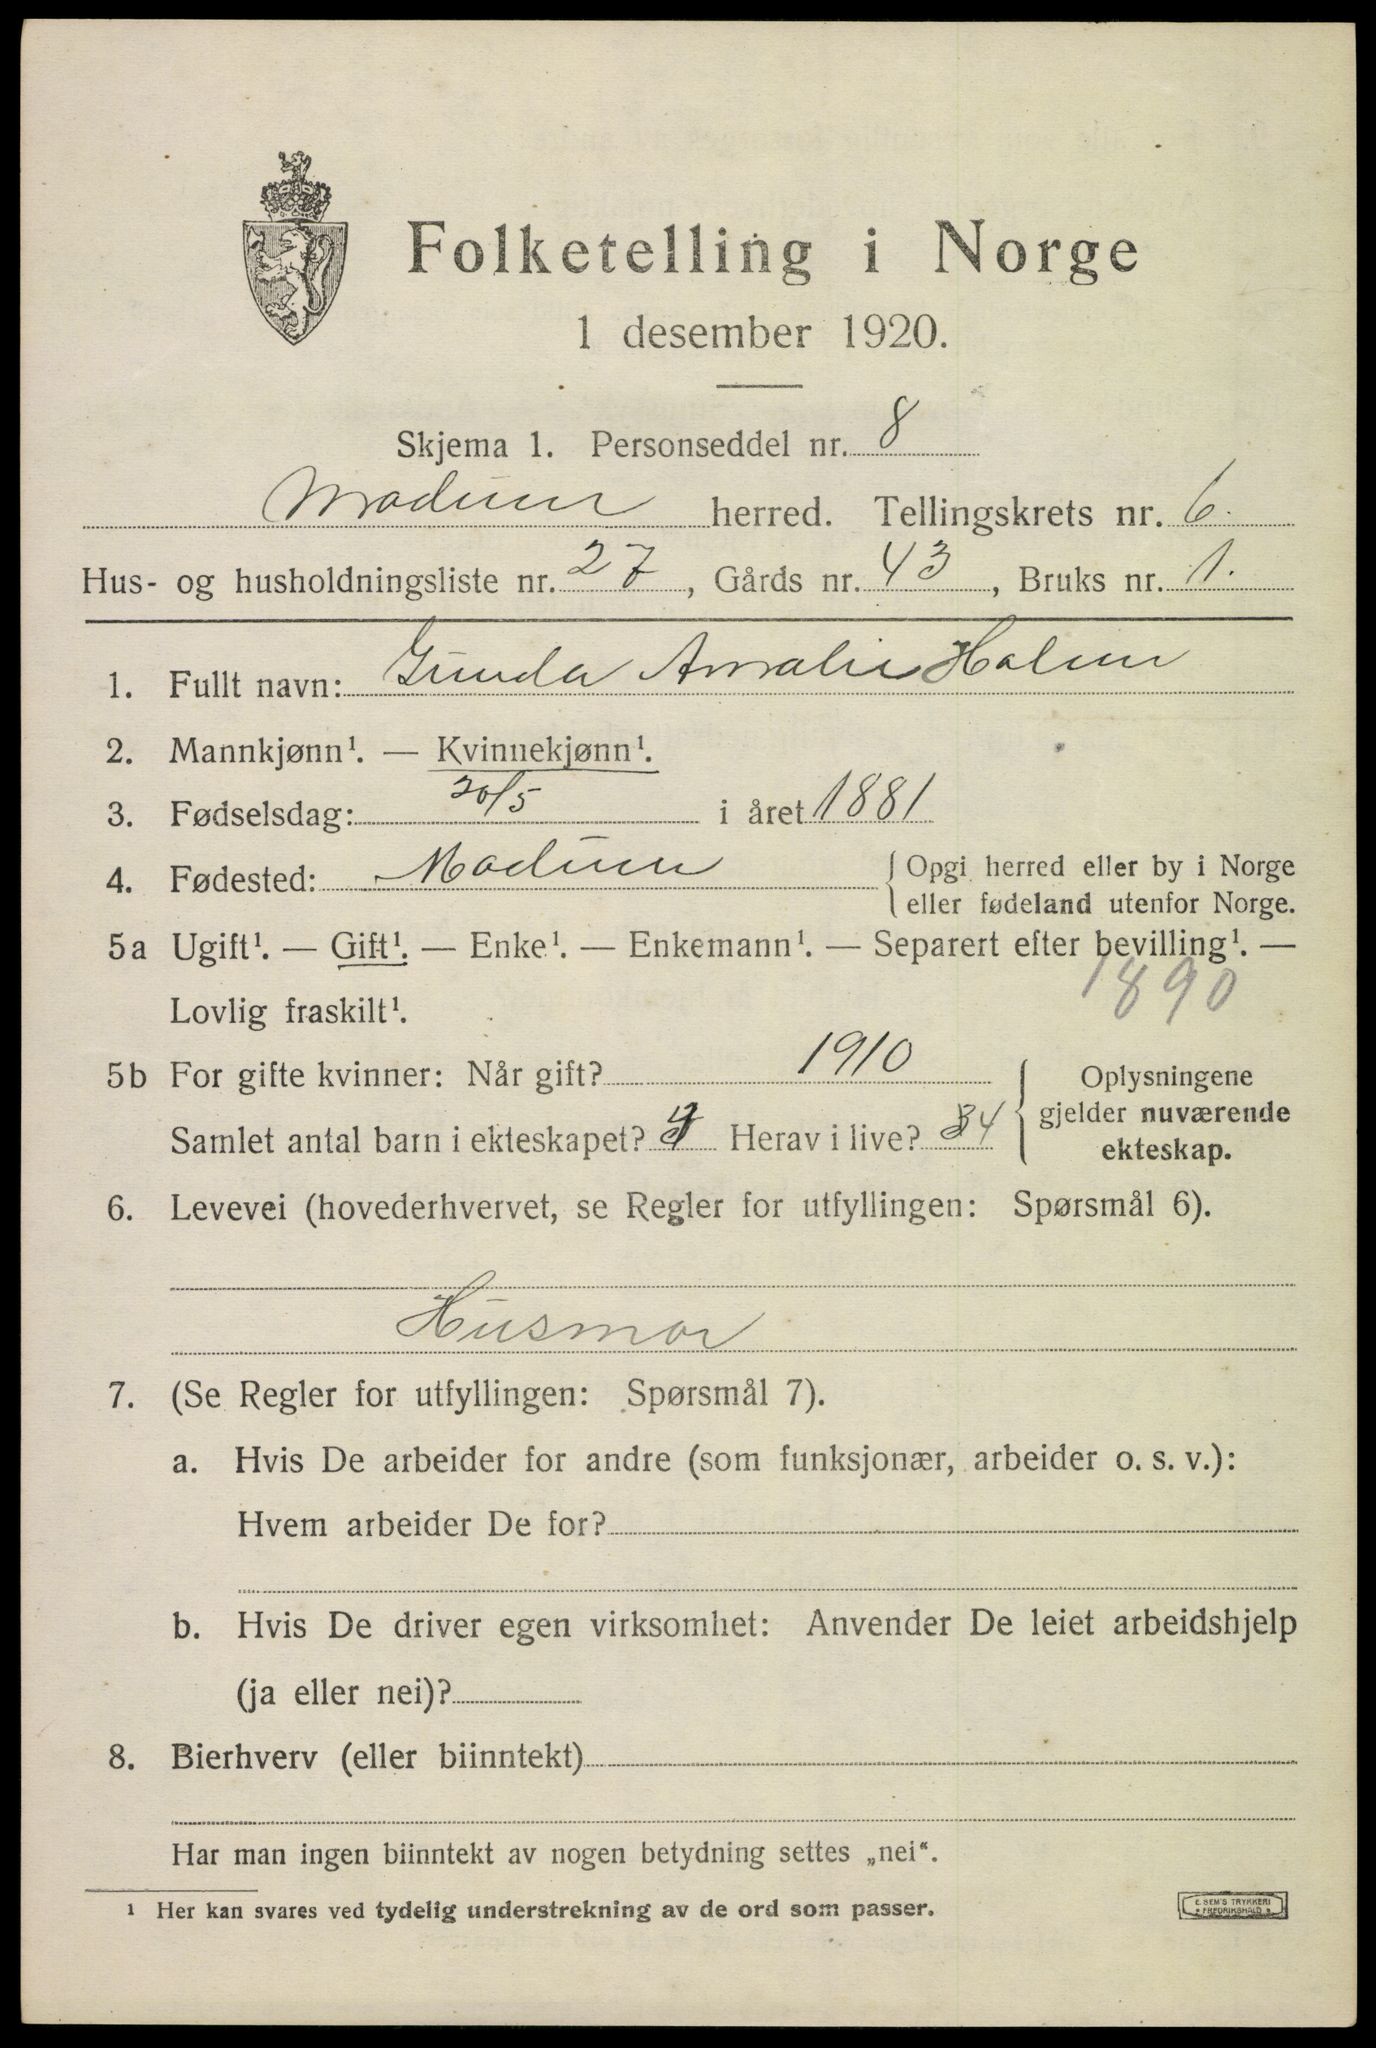 Folketelling i Norge
1 desember 1920.
Skjema 1. Personseddel nr. 8
Modum herred. Tellingskrets nr. 6.
Hus- og husholdningsliste nr. 27, Gårds nr. 43, Bruks nr. 1.
1. Fullt navn: Gunda Amalie Holm
2. Mannkjønn¹. — Kvinnekjønn¹.
3. Fødselsdag: 20/5 i året 1881
4. Fødested: Modum { Opgi herred eller by i Norge
eller fødeland utenfor Norge.
5a Ugift¹. — Gift¹. — Enke¹. — Enkemann¹. — Separert efter bevilling¹. —
Lovlig fraskilt¹. 1890
5b For gifte kvinner: Når gift? 1910
Samlet antal barn i ekteskapet? 4 Herav i live? 34
{ Oplysningene
gjelder nuværende
ekteskap.
6. Levevei (hovederhvervet, se Regler for utfyllingen: Spørsmål 6).
Husmor
7. (Se Regler for utfyllingen: Spørsmål 7).
a. Hvis De arbeider for andre (som funksjonær, arbeider o. s. v.):
Hvem arbeider De for?
b. Hvis De driver egen virksomhet: Anvender De leiet arbeidshjelp
(ja eller nei)?
8. Bierhverv (eller biinntekt)
Har man ingen biinntekt av nogen betydning settes „nei“.
¹ Her kan svares ved tydelig understrekning av de ord som passer.
E. SEM'S TRYKKERI
FREDRIKSHALD